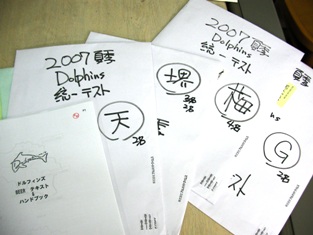 2007 夏季
Dolphins
統一テスト
2007 夏季
Dolphins
統一テスト
天
堺
梅
G
スト
ドルフィンズ
テキスト
&
ハンドブック